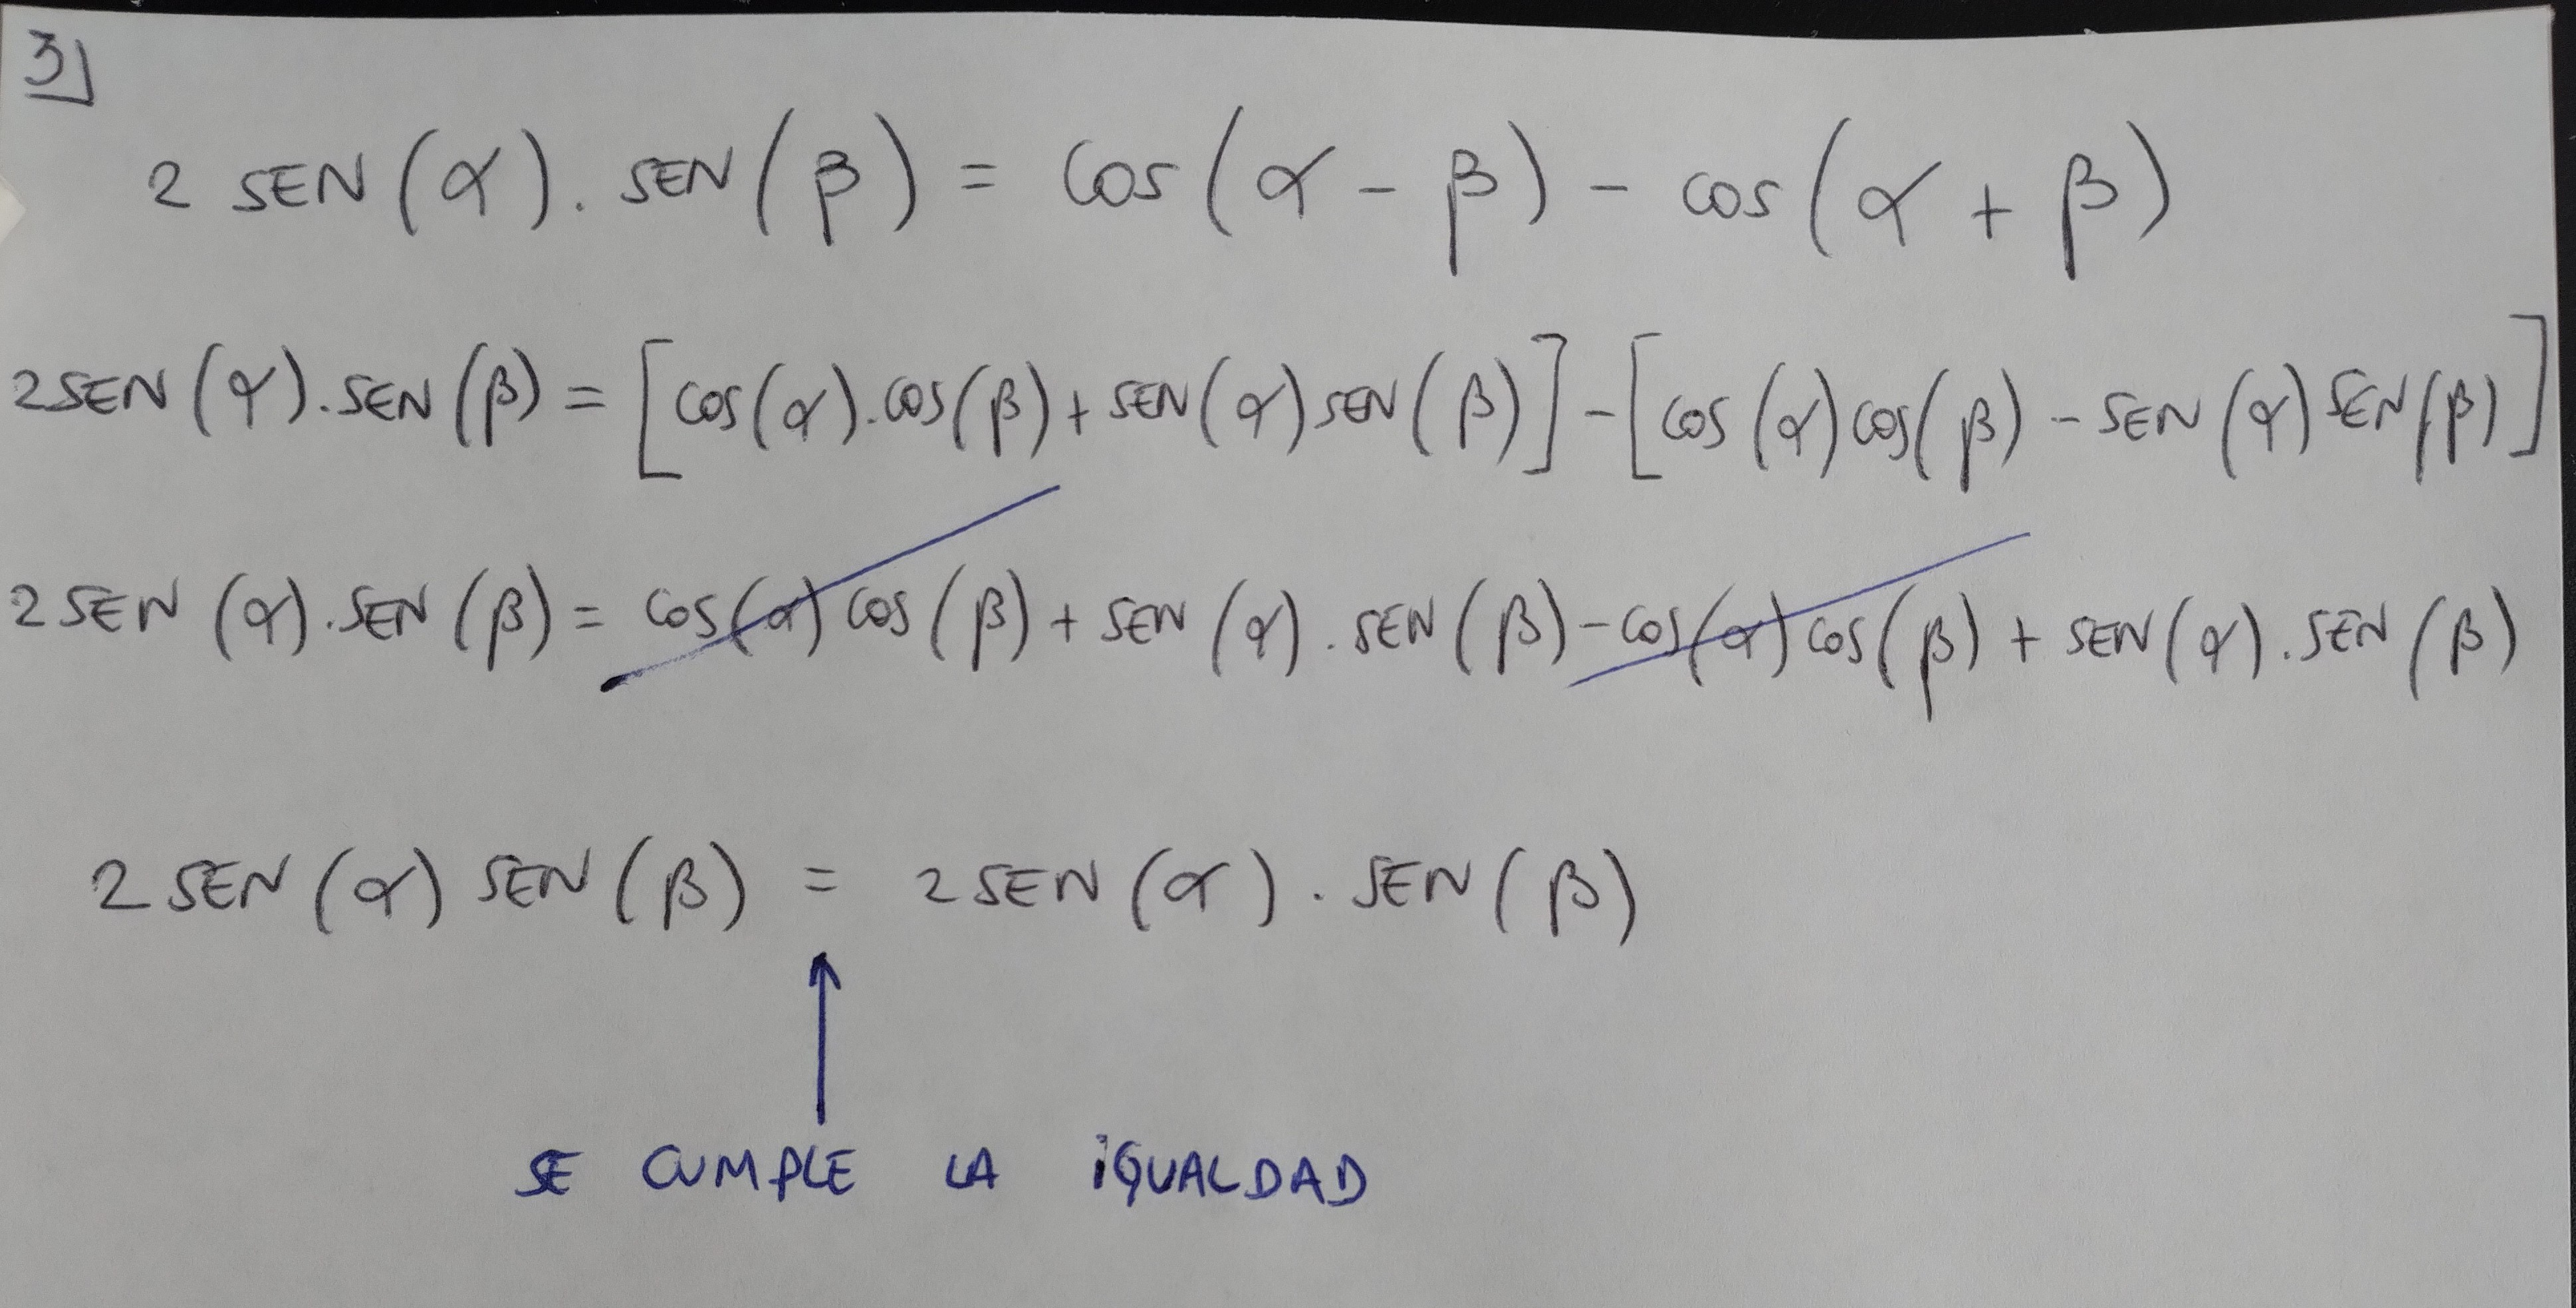 3)
2 SEN(α). SEN(β) = COS(α - β) - COS(α + β)
2SEN(α).SEN(β) = [COS(α).COS(β) + SEN(α) SEN(β)] - [COS(α) COS(β) - SEN(α) SEN(β)]
2SEN(α).SEN(β) = COS(α) COS(β) + SEN(α) . SEN(β) - COS(α) COS(β) + SEN(α) . SEN(β)
2 SEN(α) SEN(β) = 2SEN(α) . SEN(β)
SE CUMPLE LA iGUALDAD